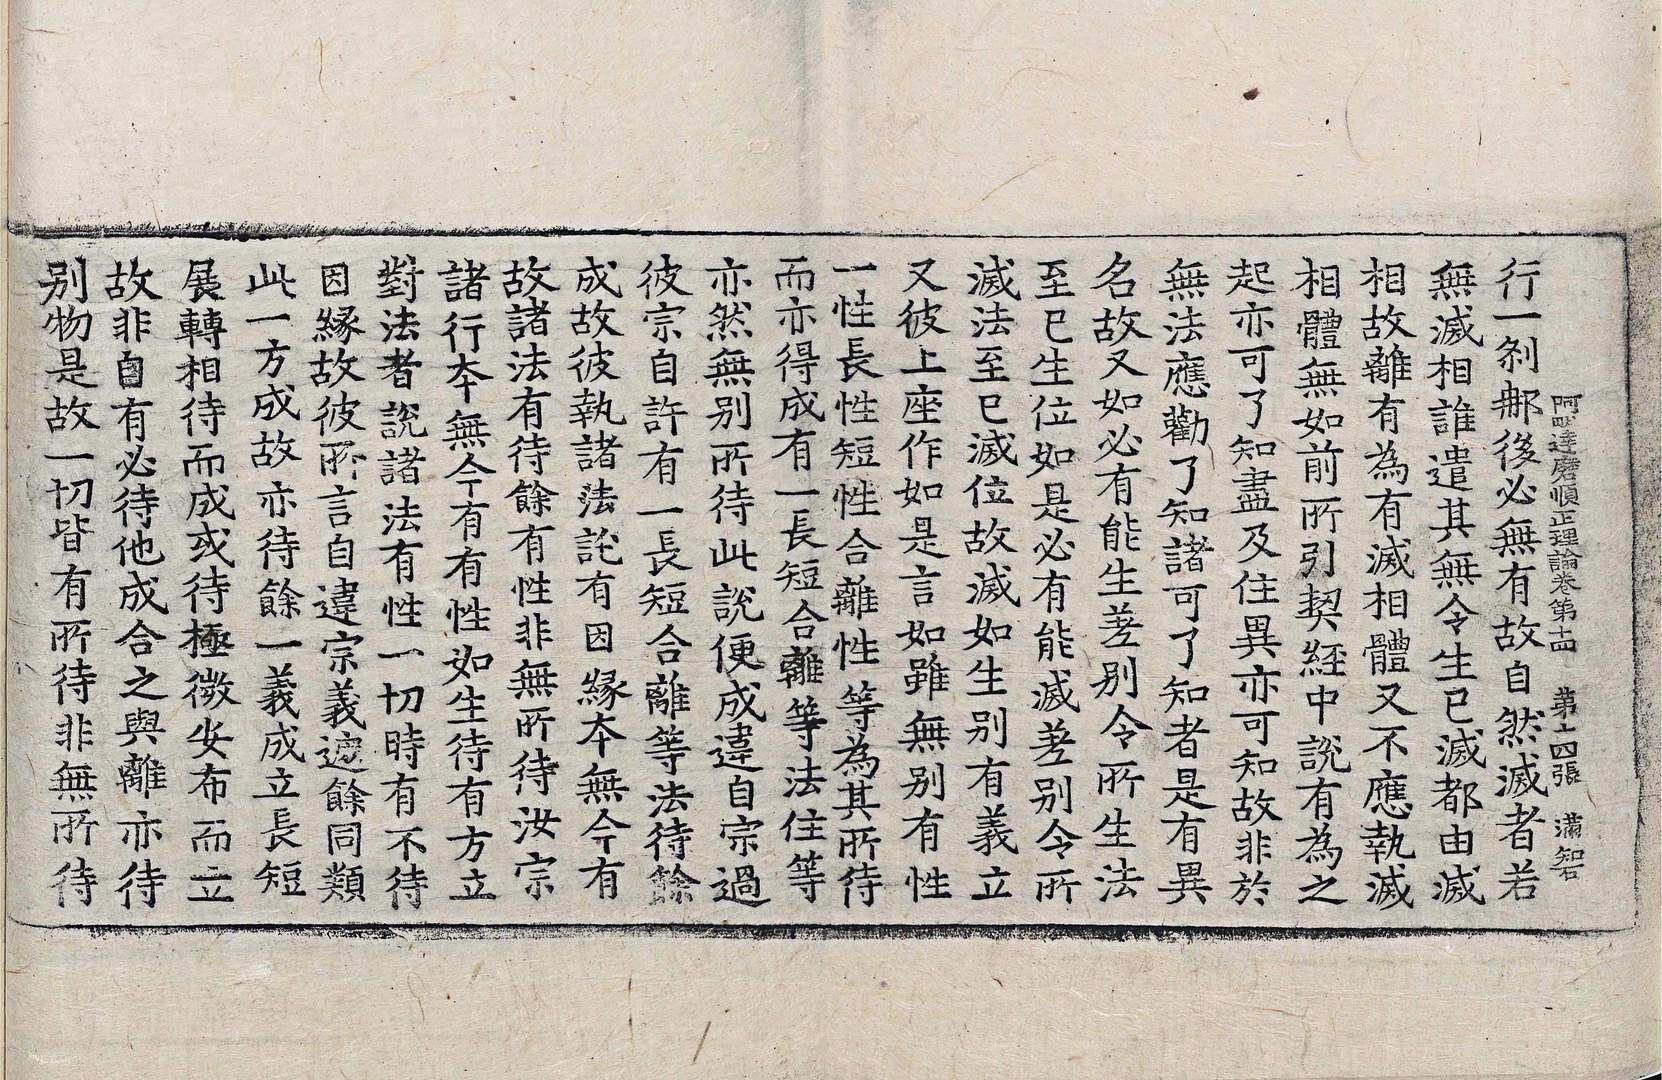 阿毗達磨順正理論卷第十四 第十四張 滿智
行一剎那後必無有故自然滅者若
無滅相誰遣其無令生已滅都由滅
相故離有為有滅相體又不應執滅
相體無如前所引契経中說有為之
起亦可了知盡及住異亦可知故非於
無法應勸了知諸可了知者是有異
名故又如必有能生差别令所生法
至已生位如是必有能滅差别令所
滅法至已滅位故滅如生别有義立
又彼上座作如是言如雖無别有性
一性長性短性合離性等為其所待
而亦得成有一長短合離等法住等
亦然無别所待此說便成違自宗過
彼宗自許有一長短合離等法待餘
成故彼執諸法託有因緣本無今有
故諸法有待餘有性非無所待汝宗
諸行本無今有有性如生待有方立
對法者說諸法有性一切時有不待
因緣故彼所言自違宗義遮餘同類
此一方成故亦待餘一義成立長短
展轉相待而成或待極微安布而立
故非自有必待他成合之與離亦待
别物是故一切皆有所待非無所待